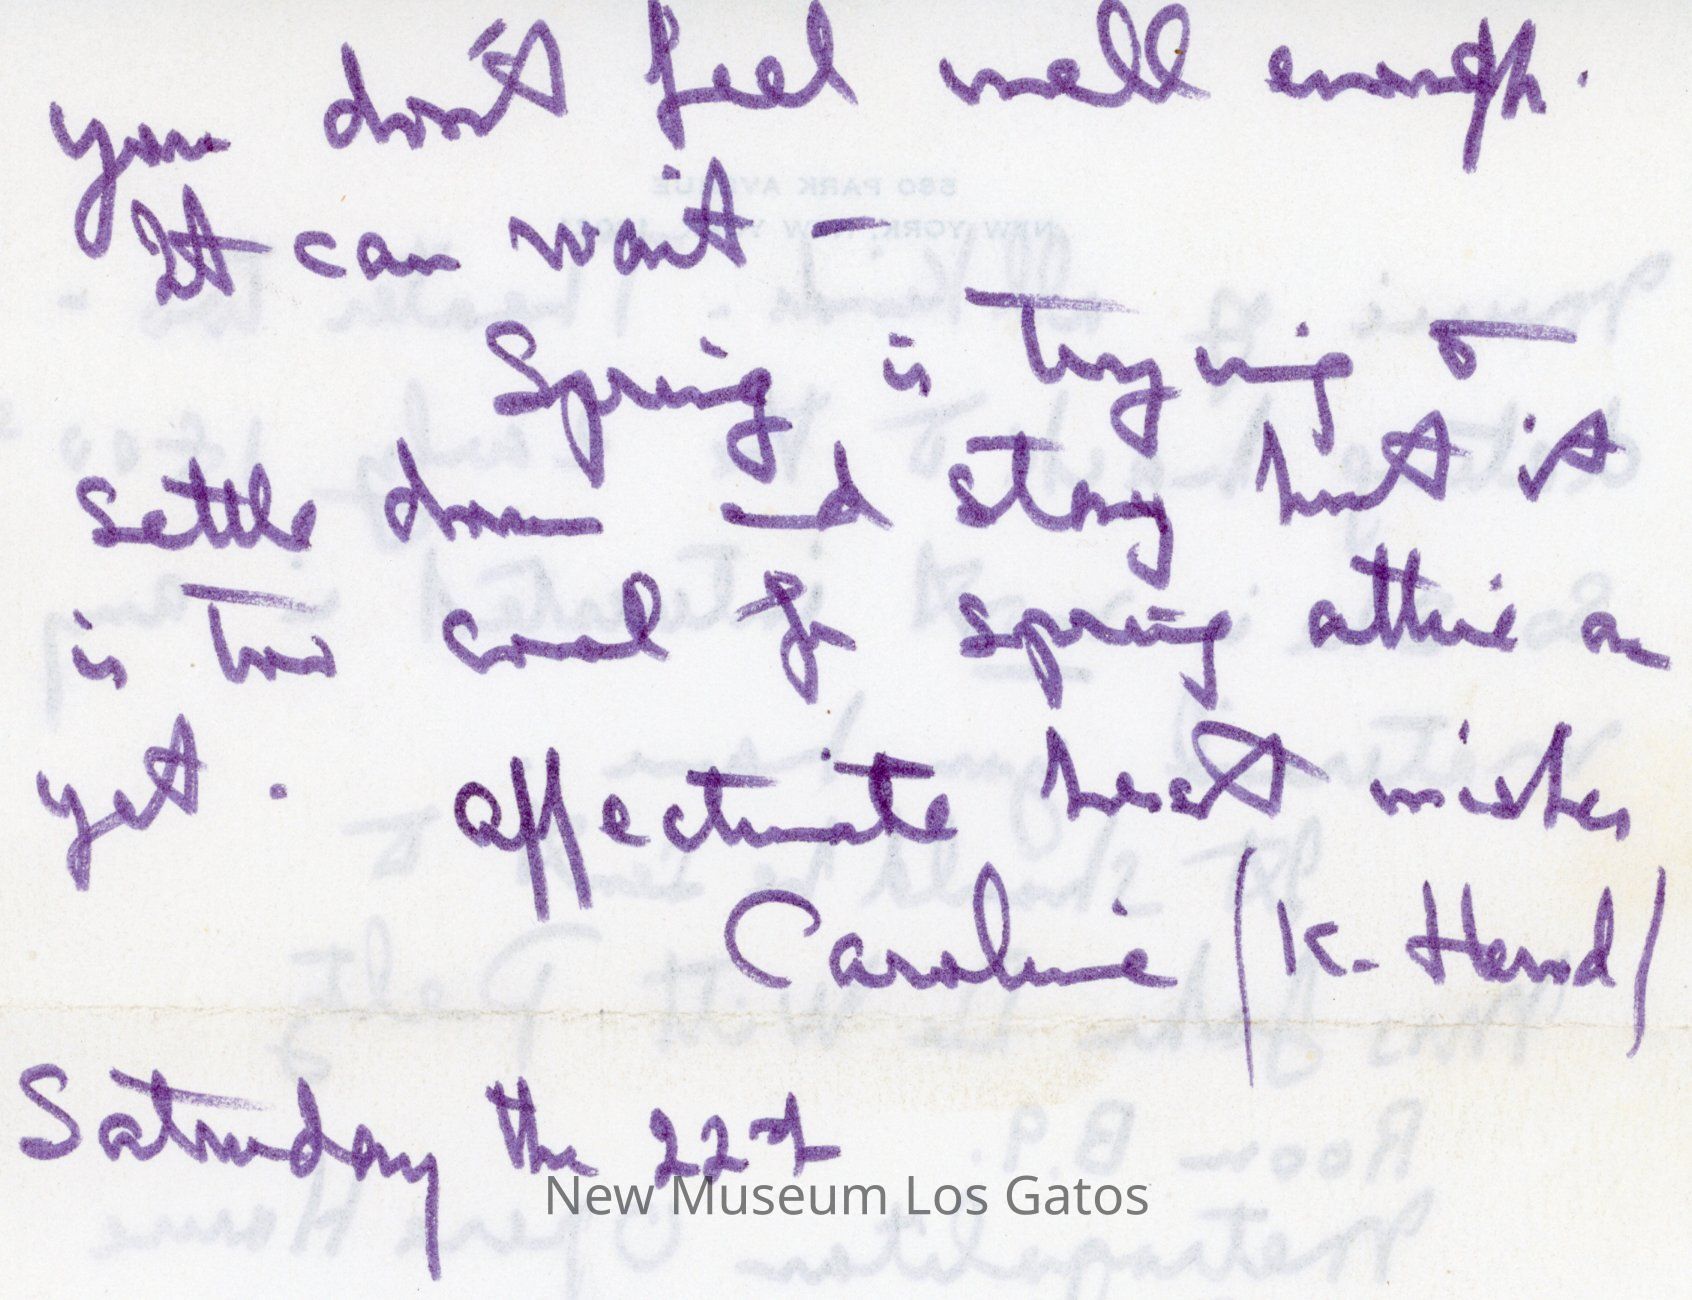 you don't feel well enough.
It can wait —
Spring is trying to
settle down and stay but it
is too cool for spring attire as
yet. Affectionate best wishes
Caroline (K. Herod)
Saturday the 22nd
New Museum Los Gatos